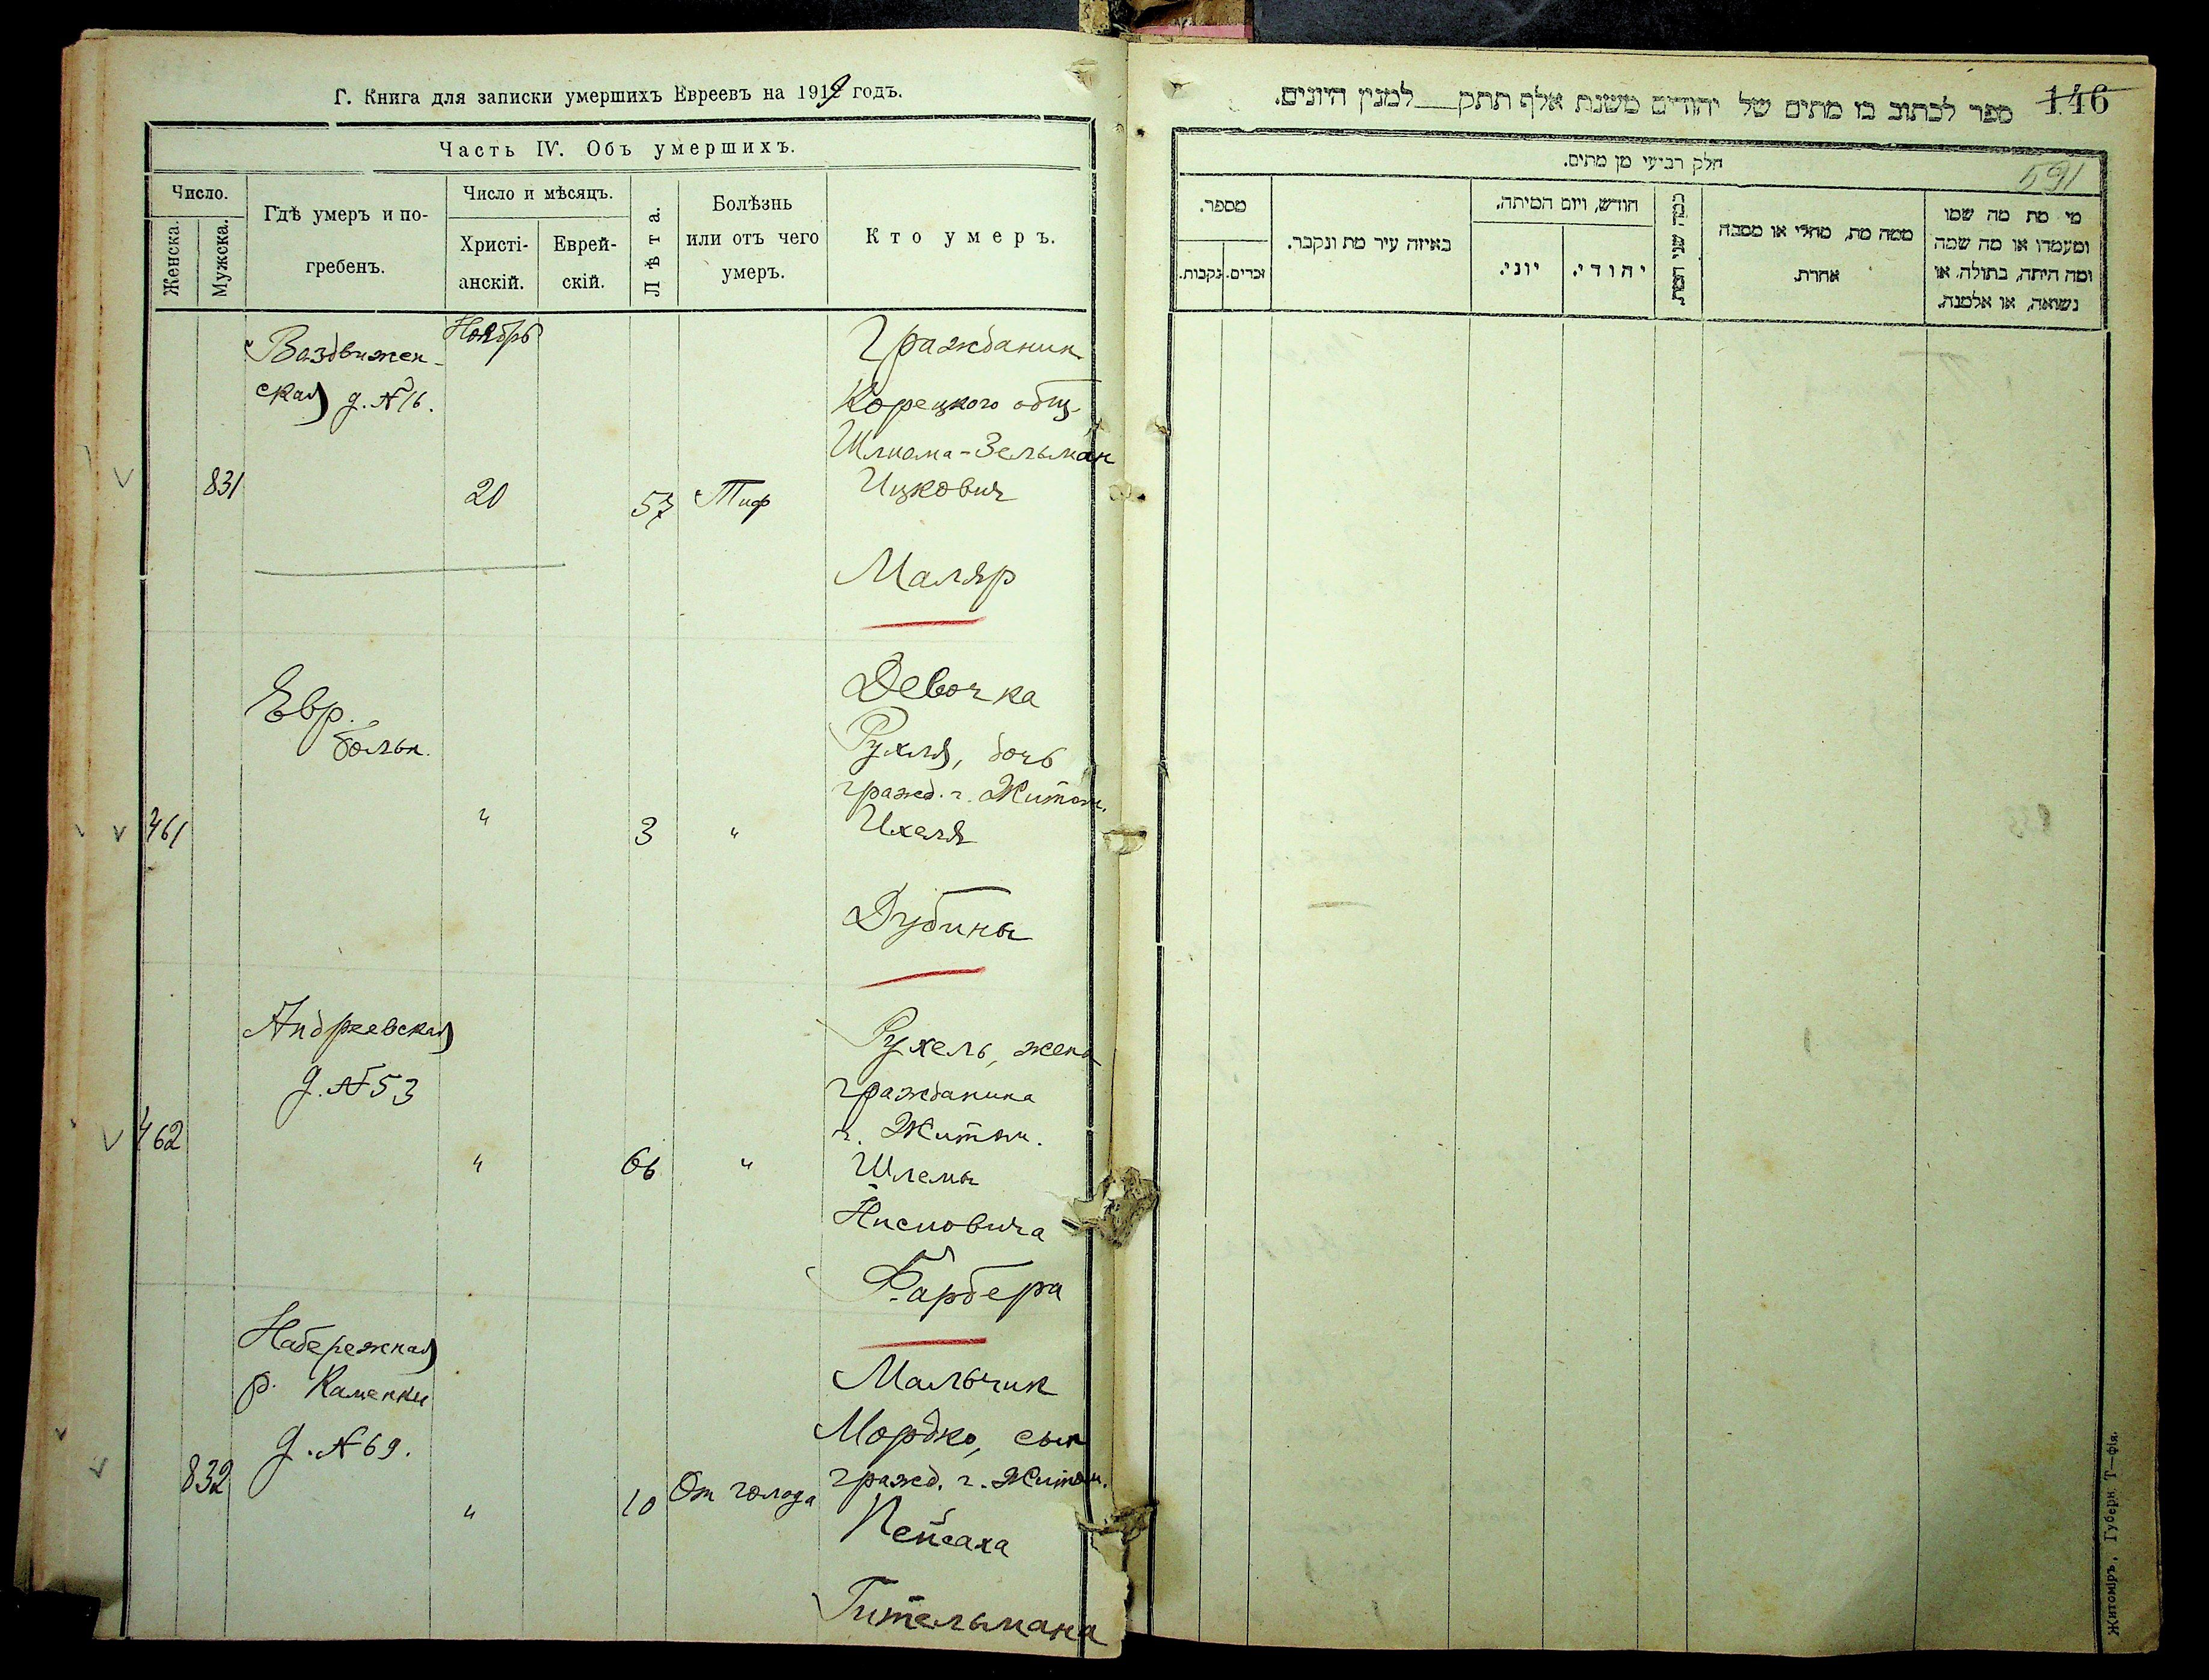 Г. Книга для записки умершихъ Евреевъ на 1919 годъ.
Часть IV. Объ умершихъ.
Число.
Женска.
Мужска.
Гдѣ умеръ и по-
гребенъ.
Число и мѣсяцъ.
Христі-
анскій.
Еврей-
скій.
Лѣта.
Болѣзнь
или отъ чего
умеръ.
Кто умеръ.
Ноябрь
Ваздвижен-
ская д. № 16.
831
20
57
Тиф
Гражданин
Корецкого общ.
Шлиома-Зельман
Ицкович
Маляр
Евр.
больн.
461
"
3
"
Девочка
Рухля, дочь
гражд. г. Житом.
Ихеля
Дубины
Андреевская
д. № 53
462
"
66
"
Рухель, жена
гражданина
г. Житом.
Шлемы
Нисновича
Фарбера
Набережная
р. Каменки
д. № 69.
832
"
10
От голода
Мальчик
Мордко, сын
гражд. г. Житом.
Пейсаха
Гительмана
146
ספר לכתוב בו מתים של יהודים משנת אלף תתק___למנין היונים.
591
חלק רביעי מן מתים.
מספר.
נקבות.
זכרים.
באיזה עיר מת ונקבר.
חודש, ויום המיתה.
יוני.
יהודי.
כמה שני המת.
ממה מת, מחלי או מסבה
אחרת.
מי מת מה שמו
ומעמדו או מה שמה
ומה היתה, בתולה, או
נשואה, או אלמנה.
Житоміръ, Губерн. Т—фія.